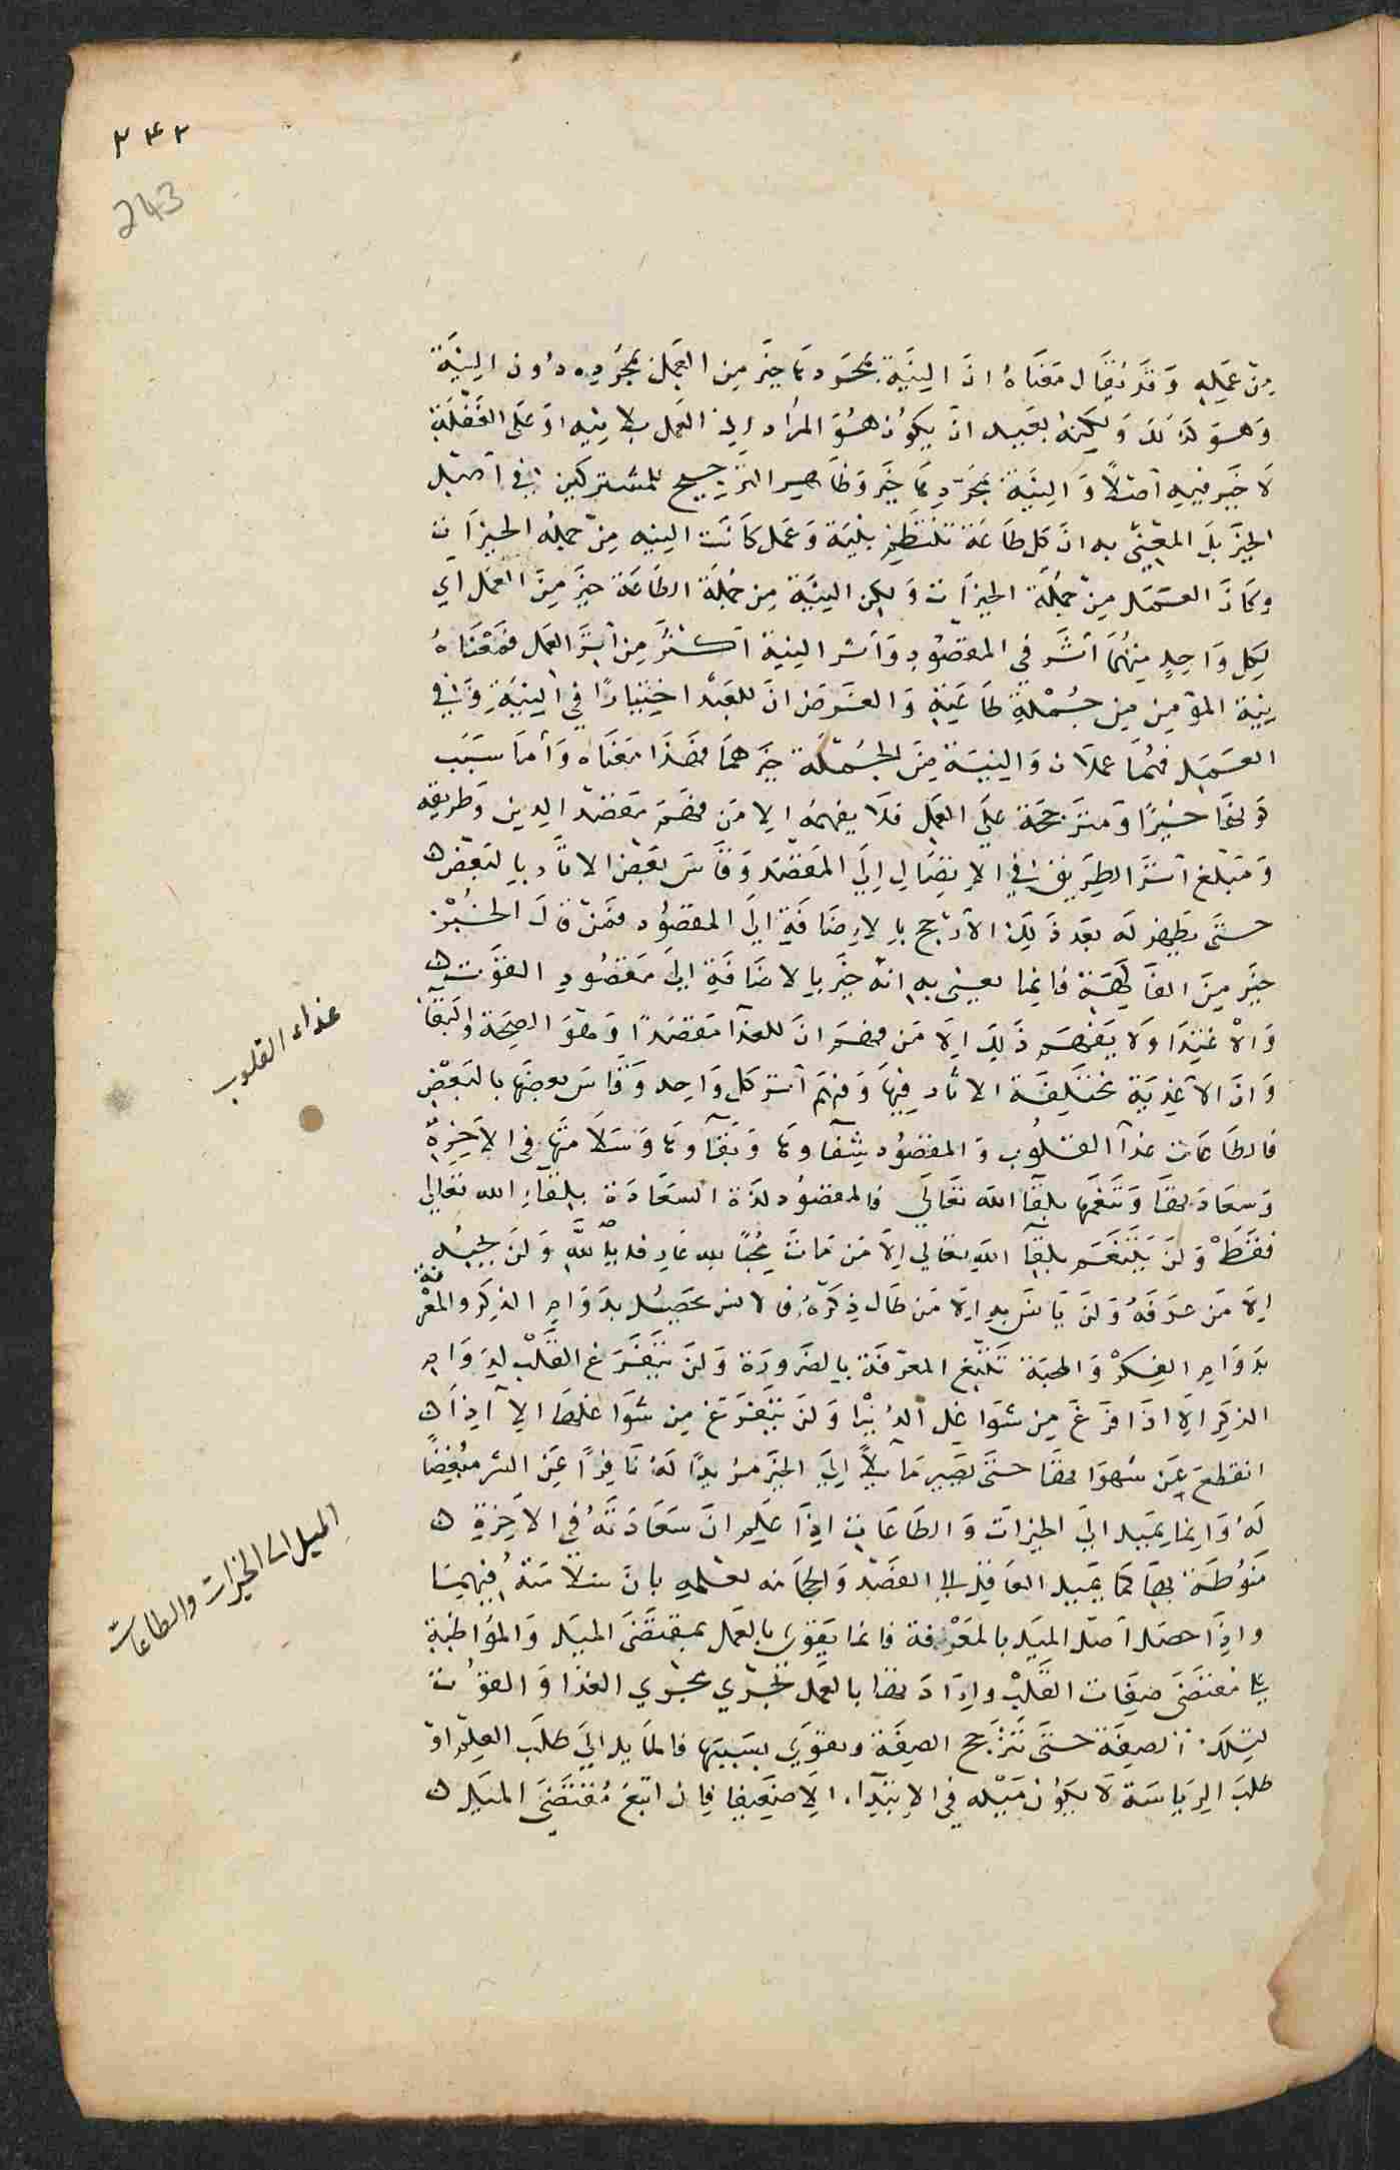 ٢٤٣
243
مِنْ عَمَلِهِ وَقَد يُقَال مَعْنَاهُ انَّ النِيَّةَ بمُجَرّدهَا خَيْر مِن العَمَلِ بمُجَرّدِهِ دُون النِيَّة
وَهُوَ كذلكَ وَلكِنهُ بَعِيد انْ يَكوُن هُوَ المُرَاد اذ العَمَل بلا نيه اوْ عَلَى الغَفْلَةِ
لَا خَيْر فِيهِ اصْلًا وَالنِيَّة بمُجَرّدِهَا خَيْر وَظَاهِر الترجيح للمشتركين في اصْل
الخَيْر بَل المَعْنيّ به انّ كل طَاعَة تنتَظِم بنيَة وَعَمَل كَانَت النيه مِنْ جمله الخيرَات
وكَانَ العَمَل مِنْ جمْلَة الخيرَات وَلكِن النِيَّة مِن جُملَة الطَاعَة خَيْر مِنَ العَمَل اي
لِكلِّ وَاحِدٍ مِنهُمَا اثَر في المَقصُودِ وَاثر النِية اكثرُ مِن اثَر العَمل فمَعْنَاهُ
نِيّة المؤمِن مِن جُمْلةِ طَاعَتِهِ وَالغَرَض انّ للعَبْد اختيَارًا في النِيَّةِ وَفي
العَمَل فهُمَا عملَان وَالنِيَّة مِنَ الجُملَة خَيْرهمَا فهَذَا مَعْنَاه وَامّا سَبَب
كَونهَا خيْرًا وَمُتَرَجحَة علَى العَمل فَلَا يفهمهُ الا مَن فهمَ مَقصَد الدِين وَطريقه
وَمَبْلغ اثَر الطرِيق في الاتِصَالِ اِلَى المَقْصَد وَقَاسَ بَعْض الاثَار بِالبَعْض
حتى يَظهر لَه بَعد ذَلِكَ الأرْجح بِالاِضَافَةِ اِلَى المقصُود فمَنْ قالَ الخُبْز
خَيْر مِنَ الفَاكِهَة فَانمَا يعنِي بِهِ انّهُ خَيْر بِالاضَافَةِ الى مَقْصُودِ القوّت
وَالاغتِذَا وَلَا يَفهَم ذَلِكَ اِلَّا مَن فهمَ انّ للغِذَا مَقصَدًا وَهوَ الصِحَة وَالبَقَا
وَانّ الاغذِيَة مُختَلِفَة الاثار فِيهَا وَفَهِم اثر كل وَاحِد وَقَاسَ بعضَهَا بالبَعْضِ
فالطَاعَات غذآ القُلُوب وَالمقصُود شِفآؤهَا وَبَقآؤهَا وَسَلَامَتهَا في الآخِرَة
وَسعَادَتهَا وَتَنَعّمهَا بلقآ الله تعَالَى فالمَقصُود لذة السَعَادَة بلِقآءِ الله تعَالي
فَقَطْ وَلنْ يَتَنَعَّم بلقآ الله تعَالي الّا مَن مَات مُحِبًّا لله عَارفا بِاللّهِ وَلَن يحبهُ
اِلّا مَن عَرَفَهُ وَلنْ يَانسَ بِهِ اِلّا مَن طَال ذِكرهُ فالانس يحصُل بدَوَامِ الذِكرِ والمَعْرفة
بدَوَامِ الفِكرْ وَالمحبّة تَتْبَع المَعرِفَة بِالضَرورَة وَلَنْ يَتَفَرَغ القَلْب لدِوَامِ
الذِكرِ الا اذا فرَغَ مِن شَوَاغِل الدُنْيَا وَلَنْ يَتَفَرغ مِن شَوَاغِلهَا الاّ اذَا
انقطعَ عَن شَهَوَاتها حتى يَصِير مَائلاً الى الخَير مُريدًا لهُ نَافِرًا عَنِ الشر مُبْغِضًا
لهُ وَانمَا يَميل الى الخيرَات وَالطَاعَات اذَا عَلِم انّ سَعَادَتَهُ في الاخِرَةِ
مَنوُطَة بهَا كمَا يَميل العَاقل الى الفَصْد وَالحجَامَه لعلمهِ بانّ سَلَامَتهُ فيهِمَا
واذَا حصَل اصْل المَيْل بالمَعْرِفة فانمَا يَقوَى بِالعَمل بمقتَضَى المَيْل وَالمُوَاظَبة
على مُقتَضَى صِفَات القَلْب وارَادتهَا بالعَمل تجْري مجْرَي الغذَا وَالقوُت
لتِلكَ الصِفَة حتَى تَتَرَجح الصِفَة وتقوَى بسَبَبِهَا فالمَايل الَى طلَب العِلْم اوْ
طلَب الرِيَاسَة لَا يَكوُن مَيْله في الابتِدآء الّا ضعِيفا فان اتبعَ مُقتَضَى المَيْل
غذاء القلوب
الميل الى الخيرات والطاعات